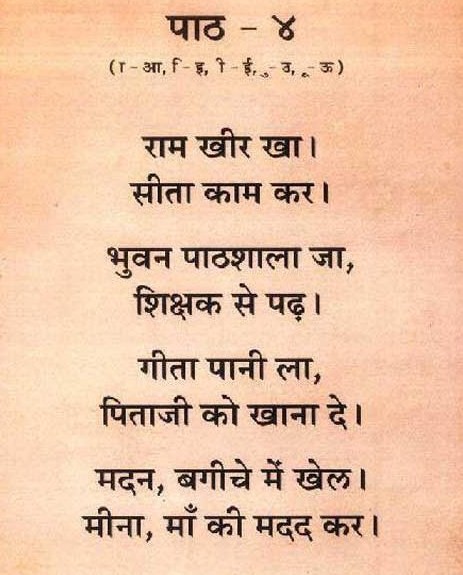 पाठ – ४
(ा-आ, ि-इ, ी-ई, ु-उ, ू-ऊ)
राम खीर खा।
सीता काम कर।
भुवन पाठशाला जा,
शिक्षक से पढ़।
गीता पानी ला,
पिताजी को खाना दे।
मदन, बगीचे में खेल।
मीना, माँ की मदद कर।